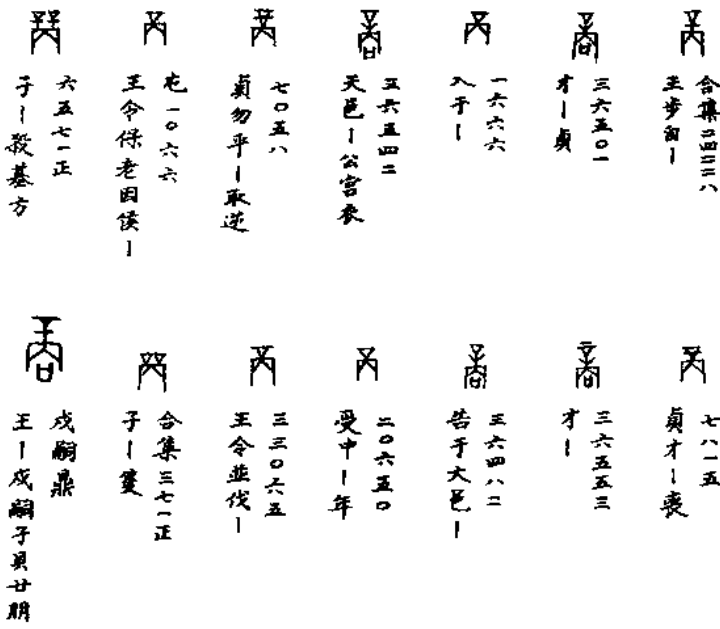 合集二四二二八
王步自丨
三六五〇一
才丨貞
一六六六
入于丨
三六五四二
天邑丨公宮衣
七〇五八
貞勿乎丨取逆
屯一〇六六
王令保老因侯丨
六五七一正
子丨殺基方
七八一五
貞才丨喪
三六五五三
才丨
三六四八二
告于大邑丨
二〇六五〇
受中丨年
三三〇六五
王令並伐丨
合集三七一正
子丨
戍嗣鼎
王丨戍嗣子貝廿朋